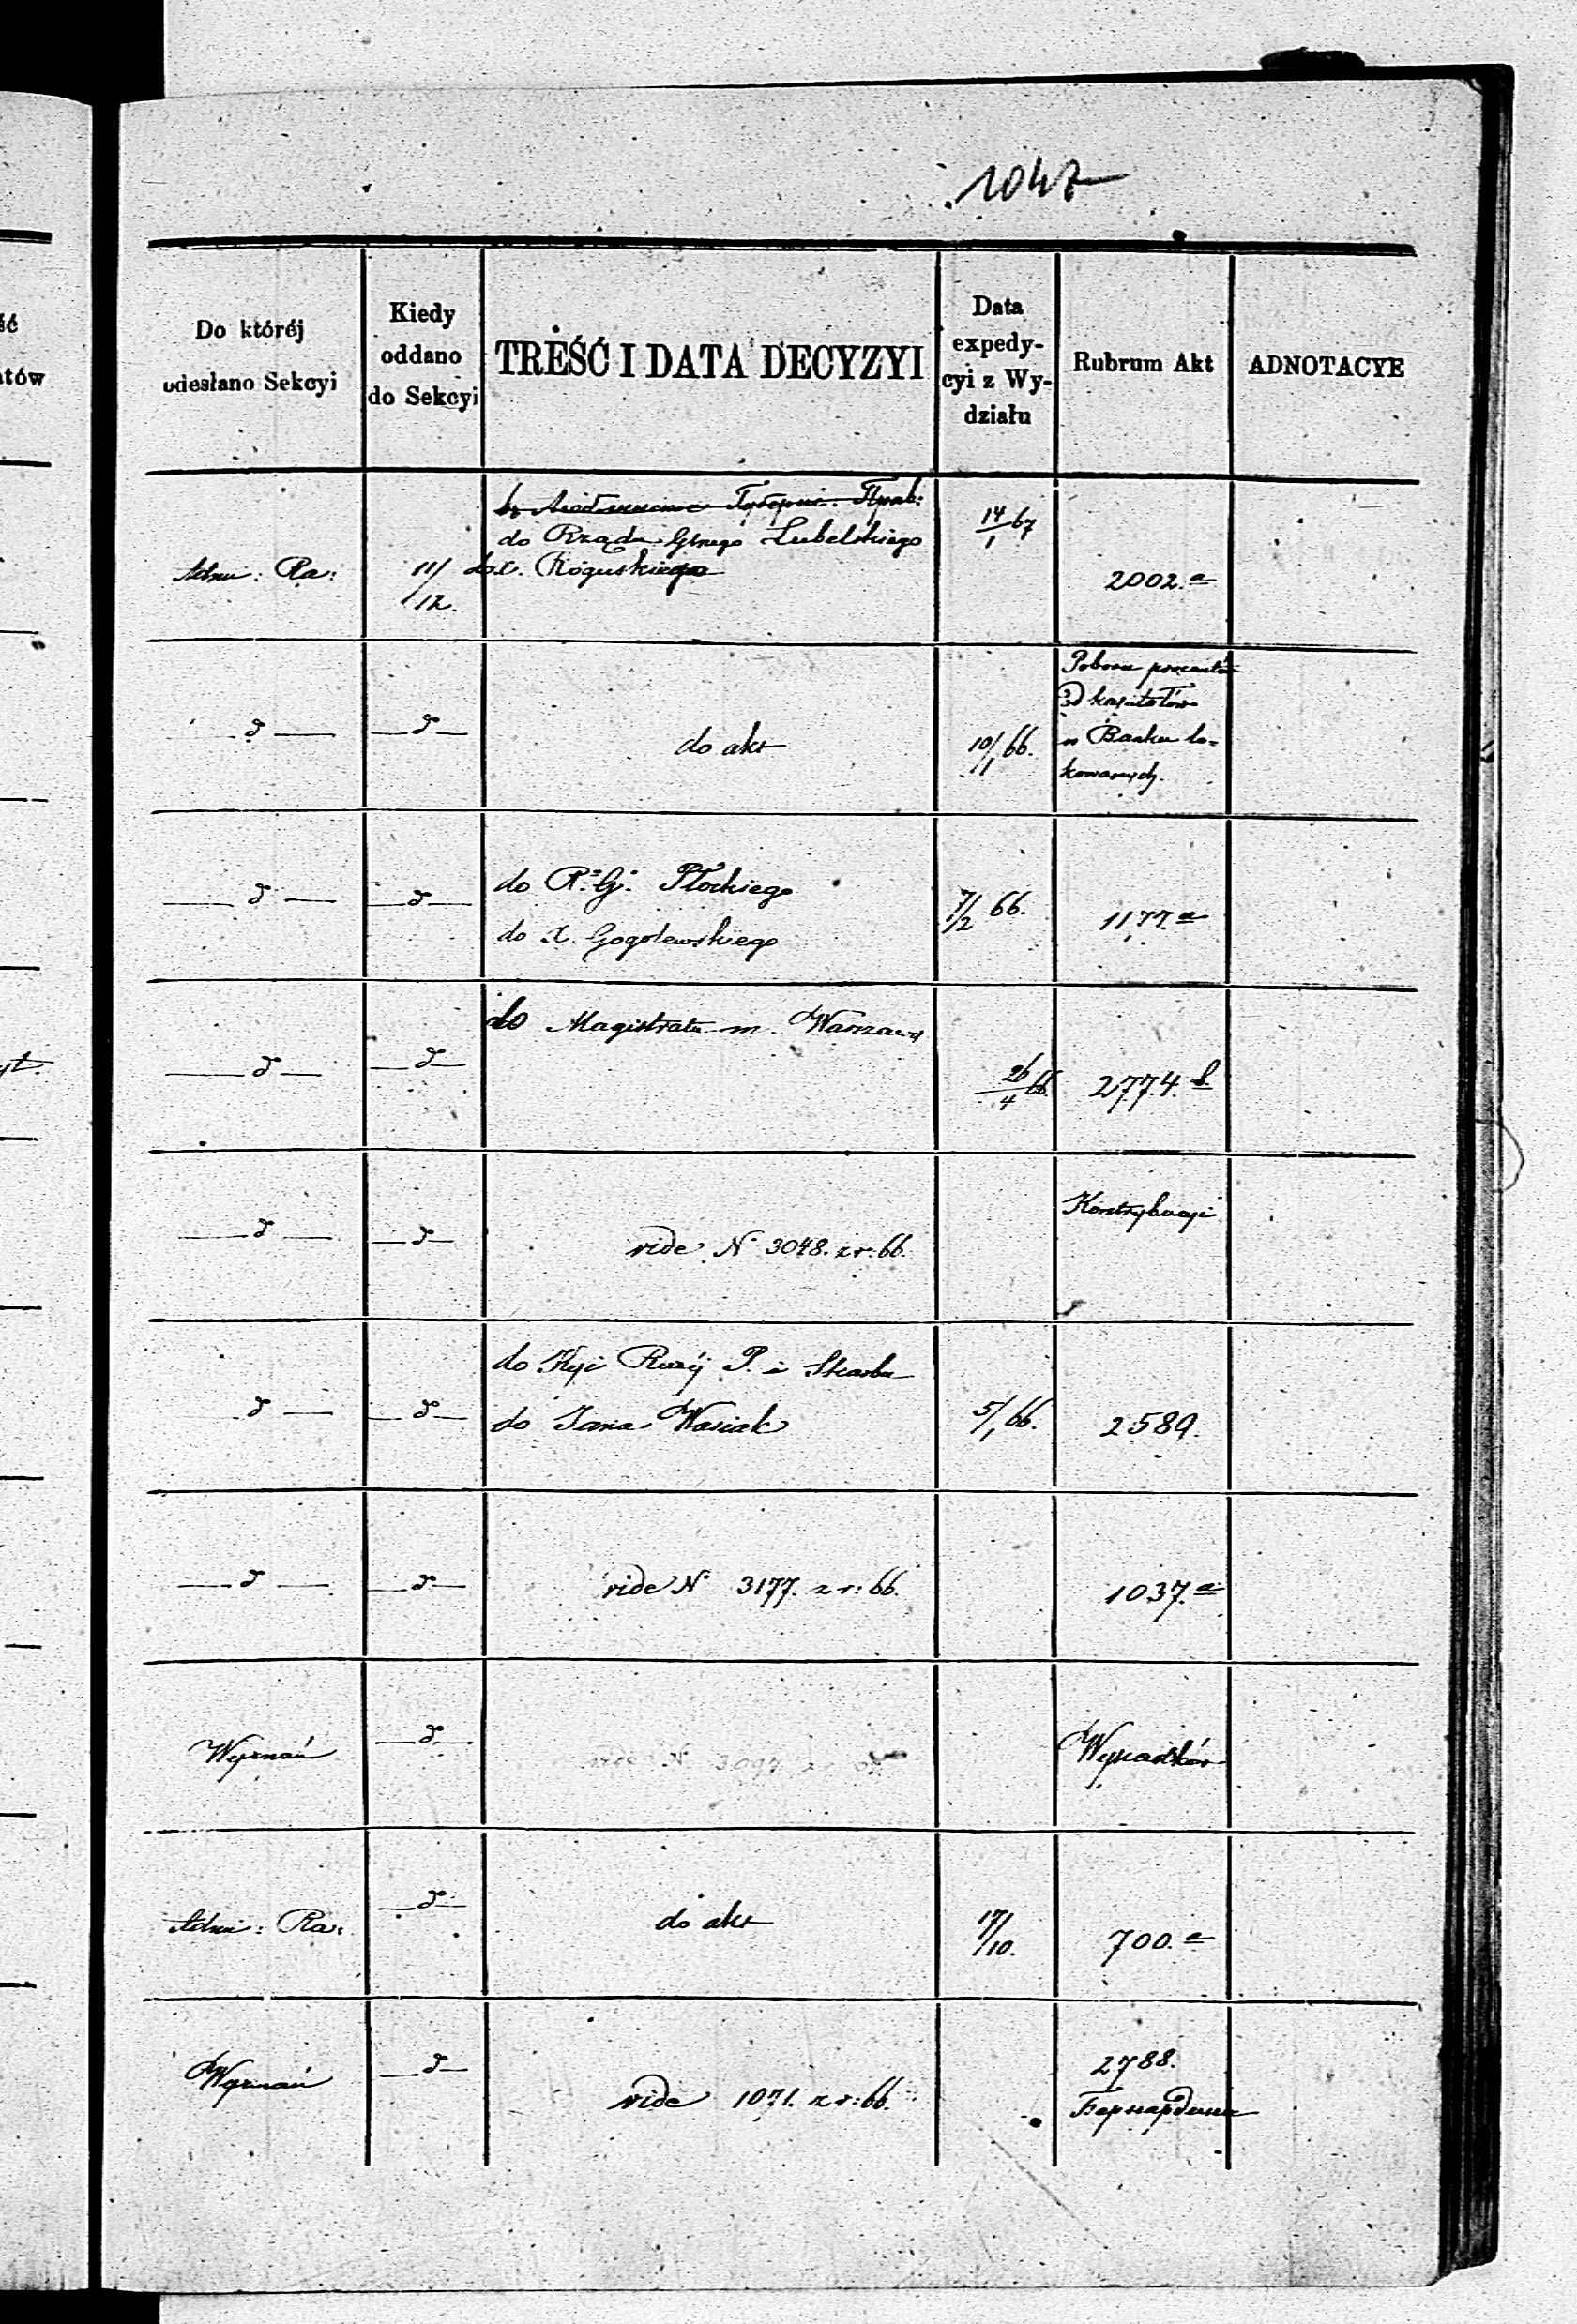 1047
ść
ntów
yt.
Do któréj
odesłano Sekcyi
Kiedy
oddano
do Sekcyi
TREŚĆ I DATA DECYZYI
Data
expedy-
cyi z Wy-
działu
Rubrum Akt
ADNOTACYE
Adm: Ra:
11/12.
въ Люблинское Губерн. Прав:
do Rządu Gbnego Lubelskiego
do X. Roguskiego
14/1 67
2002.a
— d —
— d —
do akt
10/1 66.
Poboru procentów
od kapitałów
w Banku lo-
kowanych.
— d —
— d —
do R. G. Płockiego
do X. Gogolewskiego
7/2 66.
1177.a
— d —
— d —
do Magistratu m. Warszawy
26/4 66.
2774.b
— d —
— d —
vide N 3048. z r: 66.
Kontrybucyi
— d —
— d —
do Kyi Rząj P. i Skarbu
do Jana Wasiak
5/1 66.
2589.
— d —
— d —
vide N 3177. z r: 66.
1037.a
Wyznań
— d —
vide N. 3097 z r.
Wypadków
Adm: Ra:
— d —
do akt
17/10.
700.a
Wyznań
— d —
vide 1071. z r: 66.
2788.
Бернардини